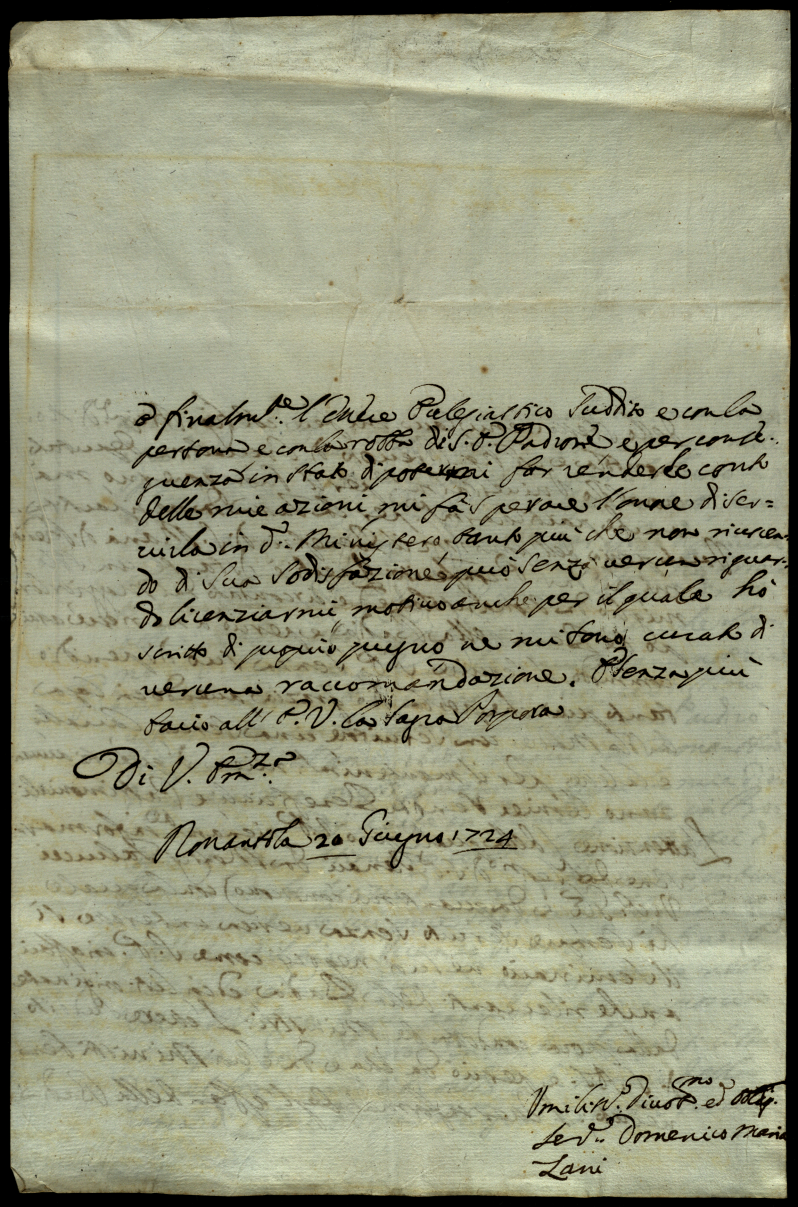 e finalm.te l'essere Eclesiastico Suddito e con la
persona e con la robba di S. E. Padrone e per conse-
guenza in stato di potermi far rendere conto
delle mie azioni mi fà sperare l'onore di ser=
virla in d.o Ministero tanto più che non riuscen-
do di Sua Sodisfazione può senza verun riguar-
do licenziarmi, motivo anche per il quale hò
scritto di proprio pugno ne mi sono curato di
veruna raccomandazione. E senza più
bacio all'E. V. la Sagra Porpora
Di V. Em.za
Nonantola 20 Giugno 1724
Umiliss.o Divot.mo ed Obblig.
Ser.e Domenico Maria
Zani